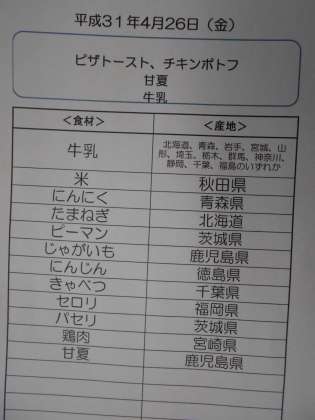 平成31年4月26日（金）
ピザトースト、チキンポトフ
甘夏
牛乳
＜食材＞ ＜産地＞
牛乳 北海道、青森、岩手、宮城、山
形、埼玉、栃木、群馬、神奈川、
静岡、千葉、福島のいずれか
米 秋田県
にんにく 青森県
たまねぎ 北海道
ピーマン 茨城県
じゃがいも 鹿児島県
にんじん 徳島県
きゃべつ 千葉県
セロリ 福岡県
パセリ 茨城県
鶏肉 宮崎県
甘夏 鹿児島県